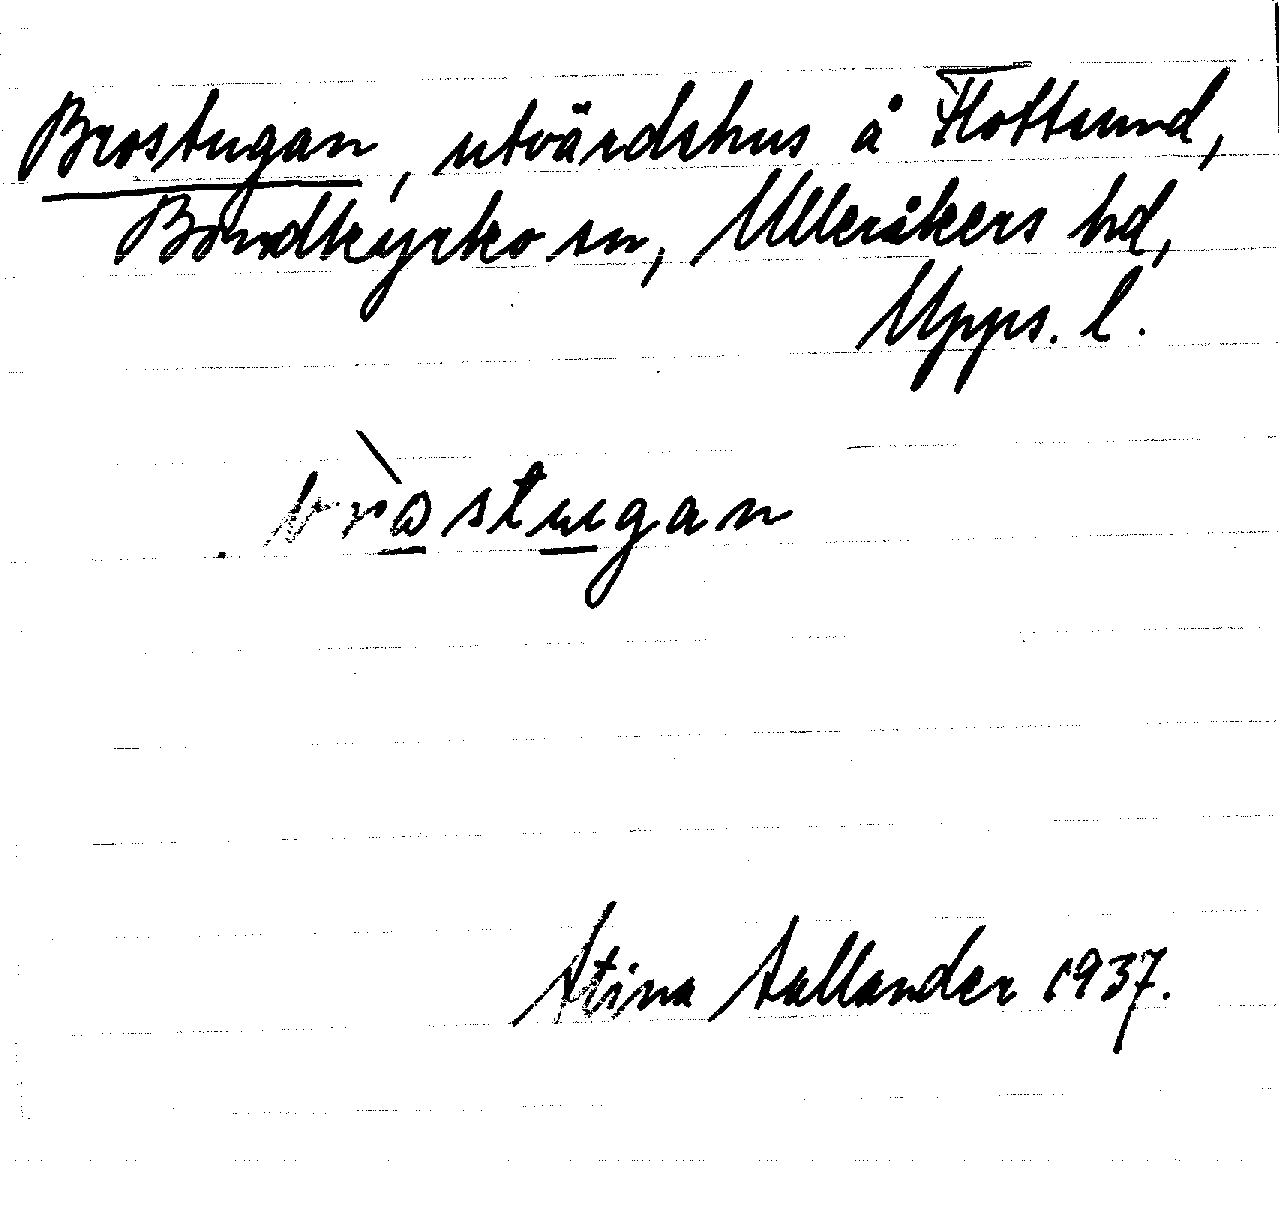 Brostugan, utvärdshus å Flottsund,
Bondkyrko sn, Ulleråkers hd,
Upps. l.
bròstugan
Stina
1937.